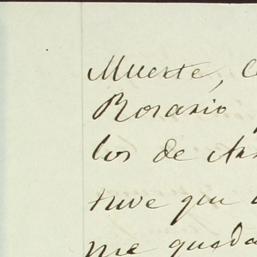 Muerte,
Rosario
los de
tuve que
me queda